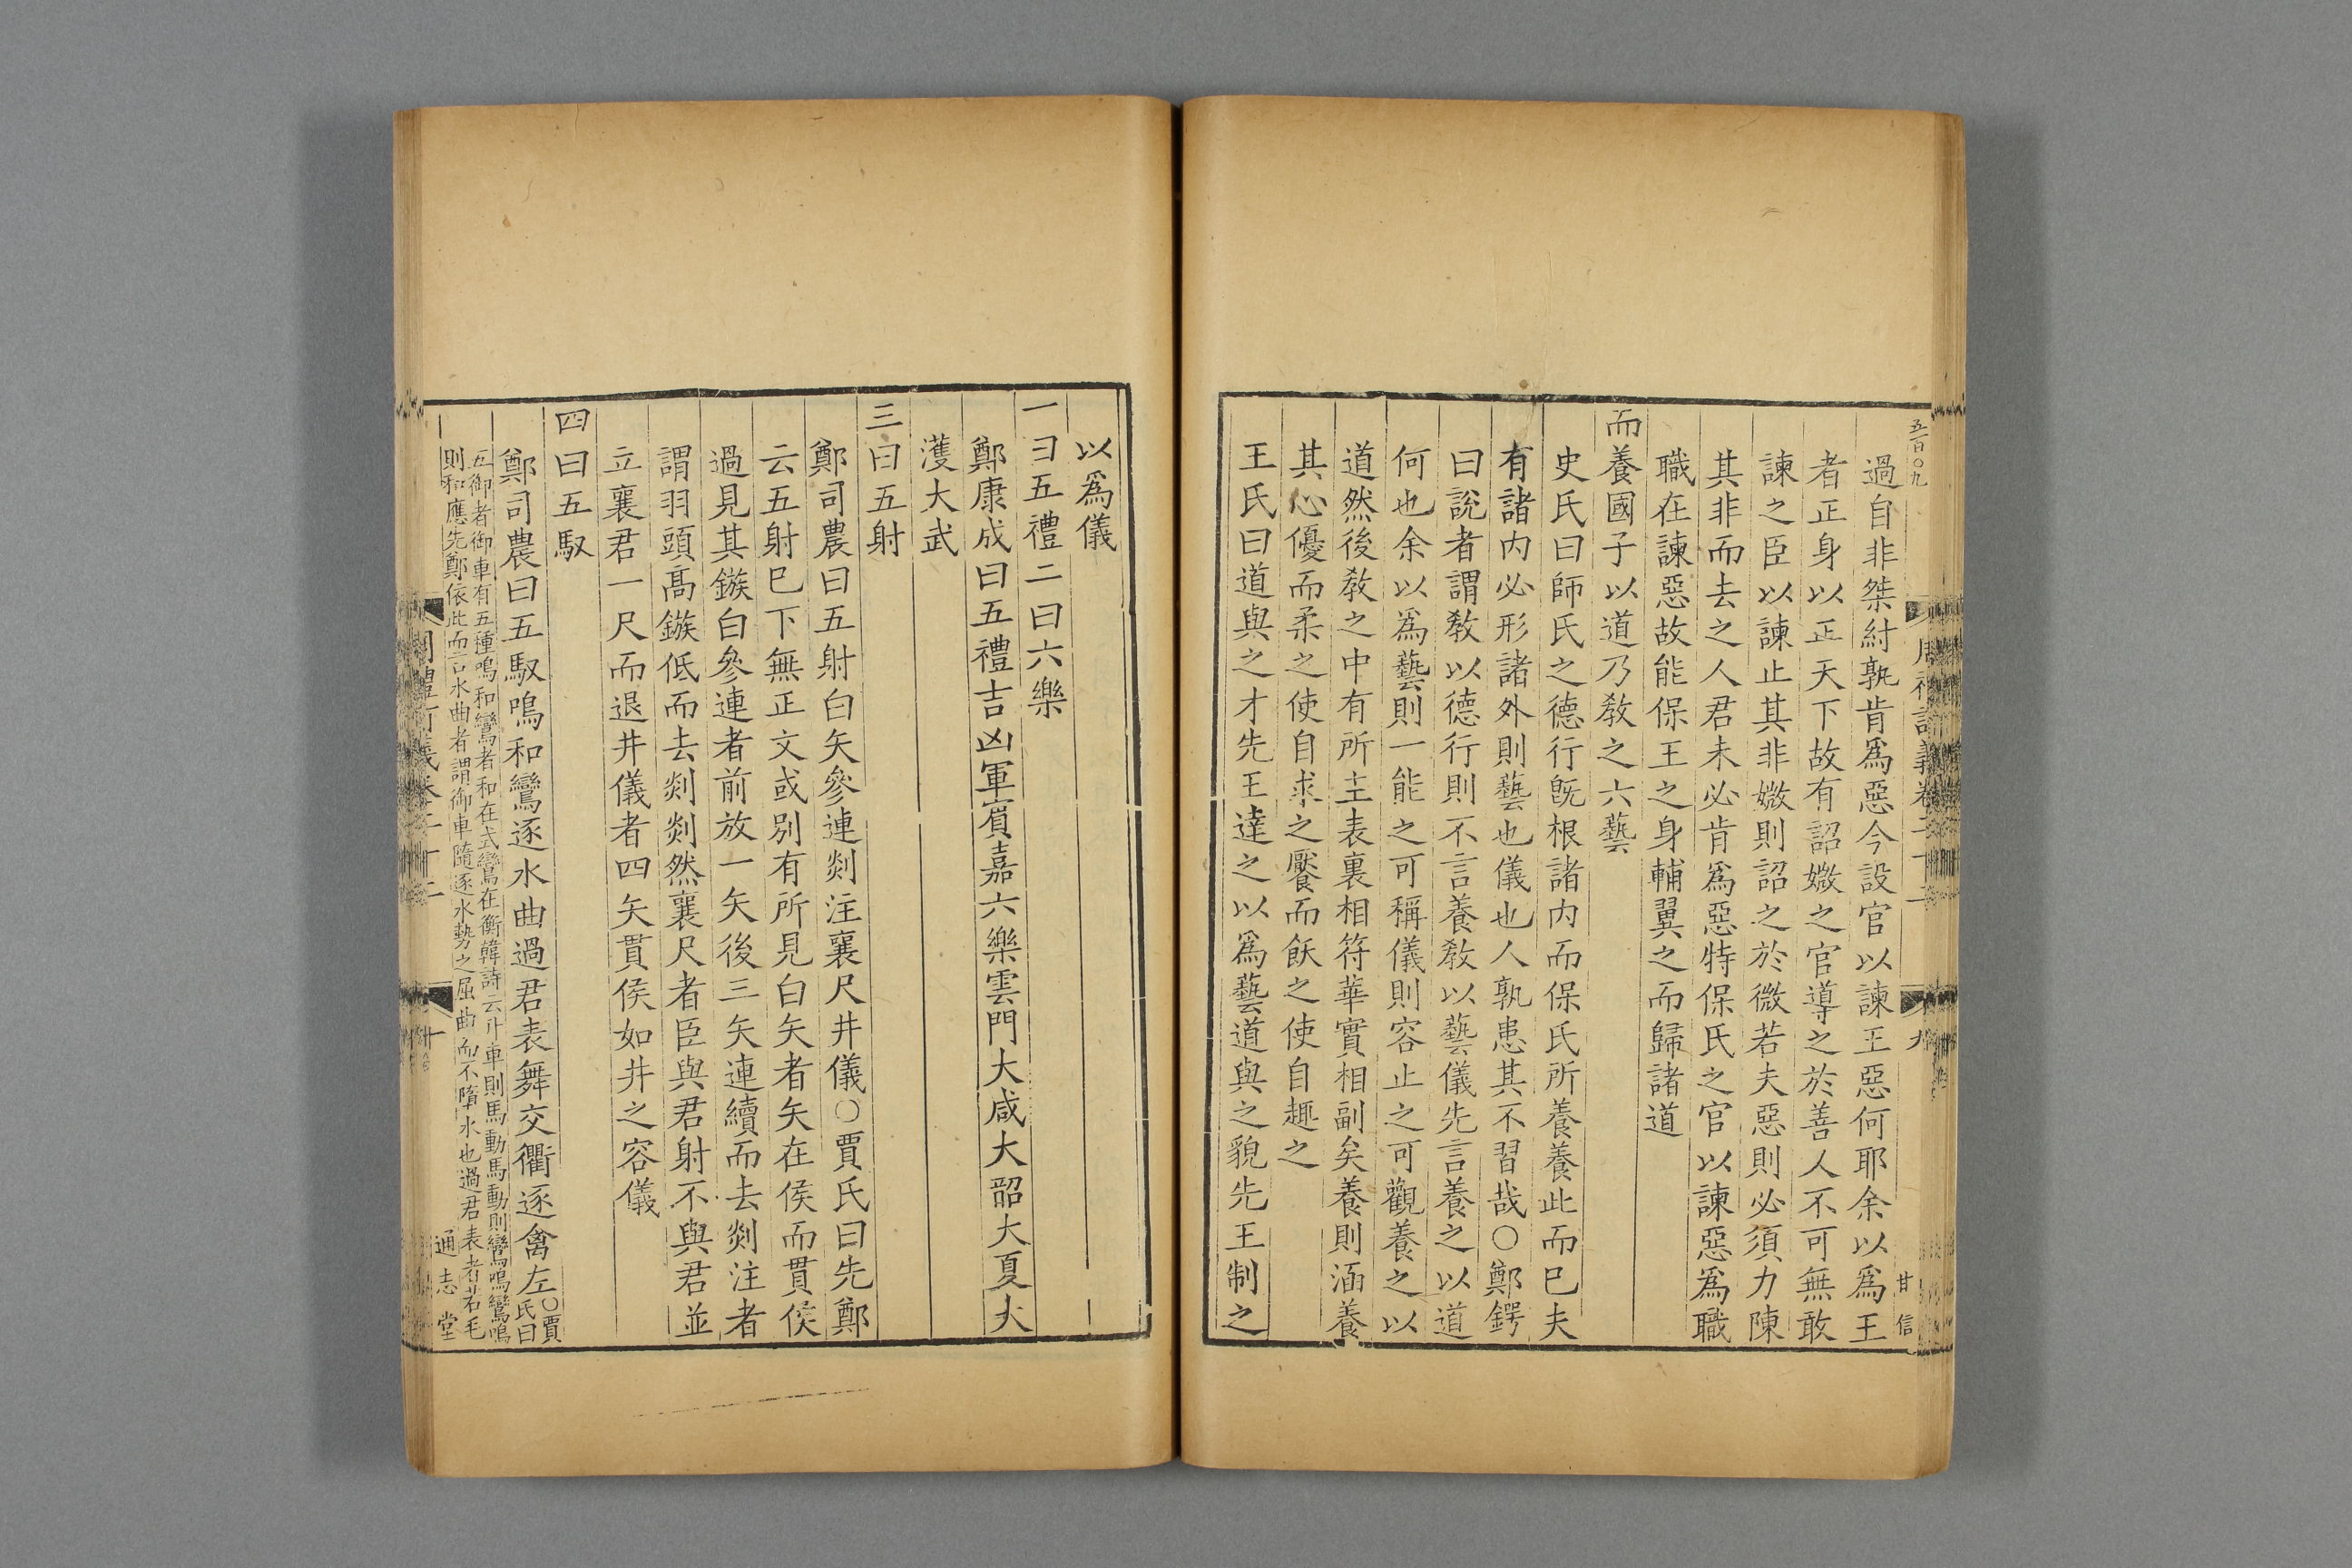 五百〇九
過自非桀紂孰肯爲惡今設官以諫王惡何耶余以爲王
者正身以正天下故有詔媺之官導之於善人不可無敢
諫之臣以諫止其非媺則詔之於微若夫惡則必須力陳
其非而去之人君未必肯爲惡特保氏之官以諫惡爲職
職在諫惡故能保王之身輔翼之而歸諸道
而養國子以道乃教之六藝
史氏曰師氏之德行旣根諸内而保氏所養養此而已夫
有諸内必形諸外則藝也儀也人孰患其不習哉○鄭鍔
曰說者謂教以德行則不言養教以藝儀先言養之以道
何也余以爲藝則一能之可稱儀則容止之可觀養之以
道然後教之中有所主表裏相符華實相副矣養則涵養
其心優而柔之使自求之饜而飫之使自趣之
王氏曰道與之才先王達之以爲藝道與之貌先王制之
九
甘信
以爲儀
一曰五禮二曰六樂
鄭康成曰五禮吉凶軍賓嘉六樂雲門大咸大韶大夏大
濩大武
三曰五射
鄭司農曰五射白矢參連剡注襄尺井儀○賈氏曰先鄭
云五射已下無正文或别有所見白矢者矢在侯而貫侯
過見其鏃白參連者前放一矢後三矢連續而去剡注者
謂羽頭高鏃低而去剡剡然襄尺者臣與君射不與君並
立襄君一尺而退井儀者四矢貫侯如井之容儀
四曰五馭
鄭司農曰五馭鳴和鸞逐水曲過君表舞交衢逐禽左○賈氏曰
五御者御車有五種鳴和鸞者和在式鸞在衡韓詩云升車則馬動馬動則鸞鳴鸞鳴
則和應先鄭依此而言水曲者謂御車隨逐水勢之屈曲而不墮水也過君表者若毛
通志堂